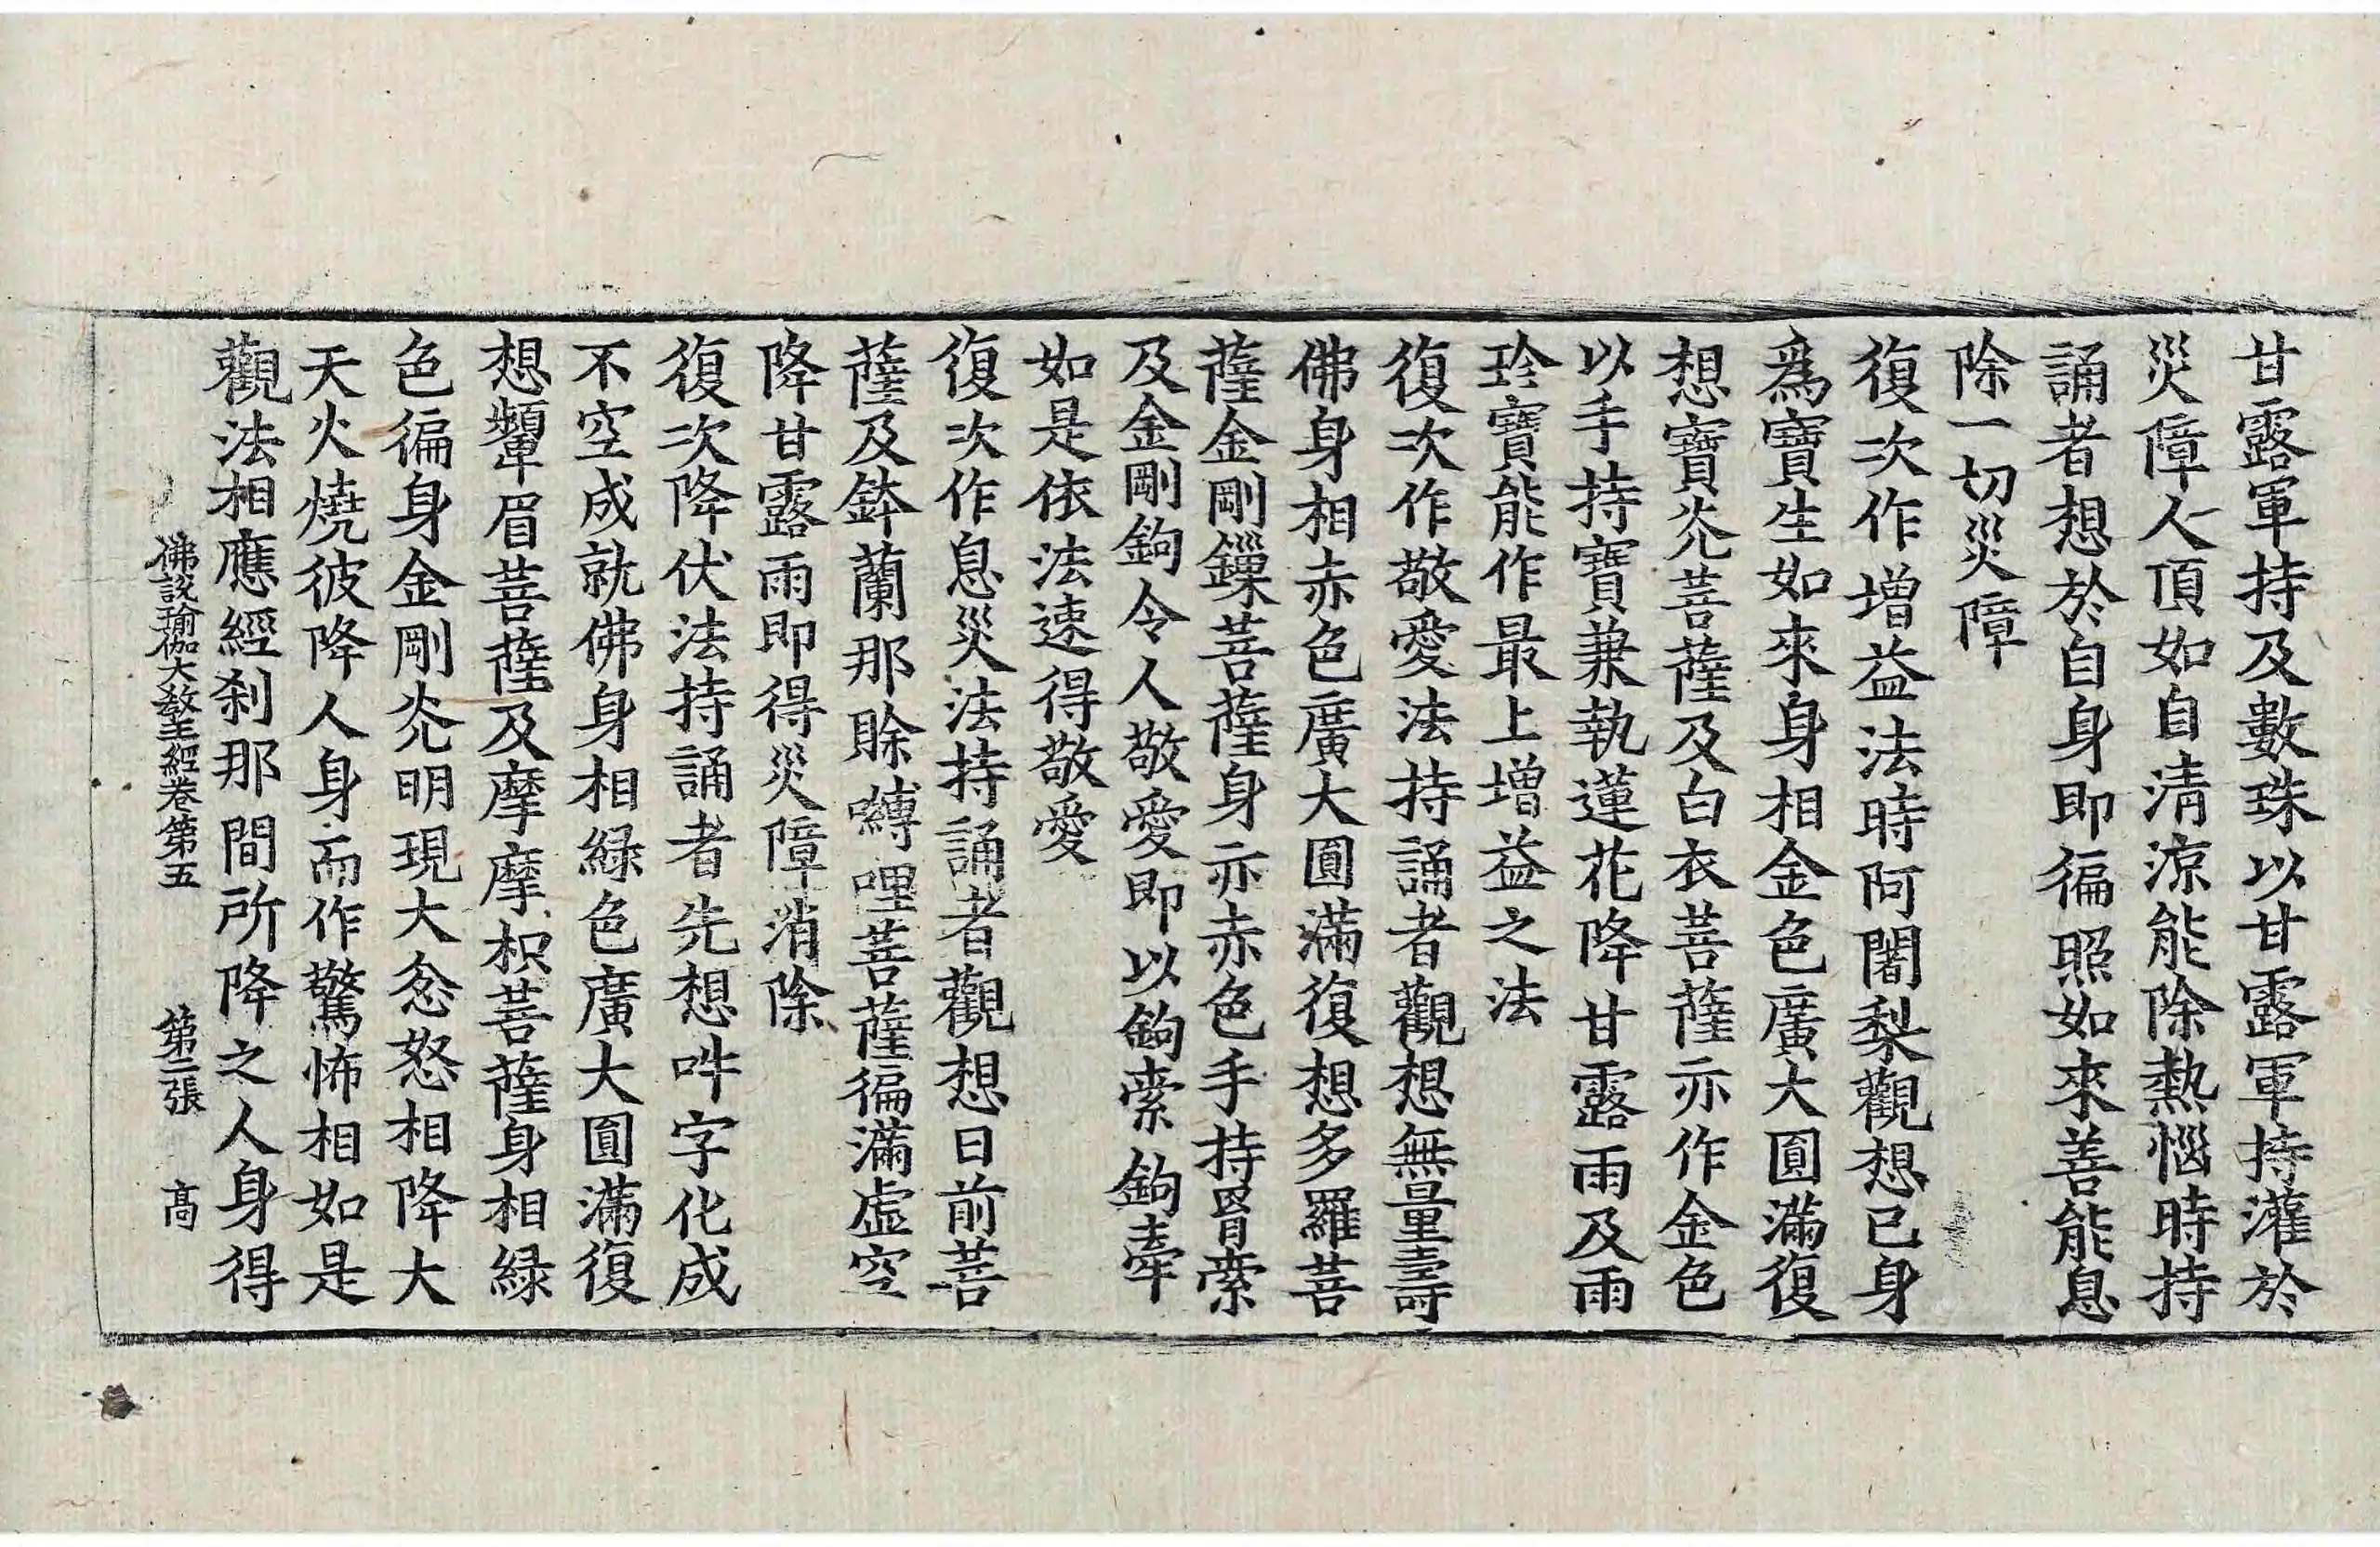 甘露軍持及數珠以甘露軍持灌於
災障人頂如自清涼能除熱惱時持
誦者想於自身即徧照如來善能息
除一切災障
復次作增益法時阿闍梨觀想已身
爲寶生如來身相金色廣大圓滿復
想寶光菩薩及白衣菩薩亦作金色
以手持寶兼執蓮花降甘露雨及雨
珍寶能作最上增益之法
復次作敬愛法持誦者觀想無量壽
佛身相赤色廣大圓滿復想多羅菩
薩金剛鏁菩薩身亦赤色手持罥索
及金剛鉤令人敬愛即以鉤索鉤牽
如是依法速得敬愛
復次作息災法持誦者觀想日前菩
薩及鉢蘭那賒嚩哩菩薩徧滿虛空
降甘露雨即得災障消除
復次降伏法持誦者先想吽字化成
不空成就佛身相緑色廣大圓滿復
想顰眉菩薩及摩摩枳菩薩身相緑
色徧身金剛光明現大忿怒相降大
天火燒彼降人身而作驚怖相如是
觀法相應經刹那間所降之人身得
佛說瑜伽大教王經卷第五 第二張 高